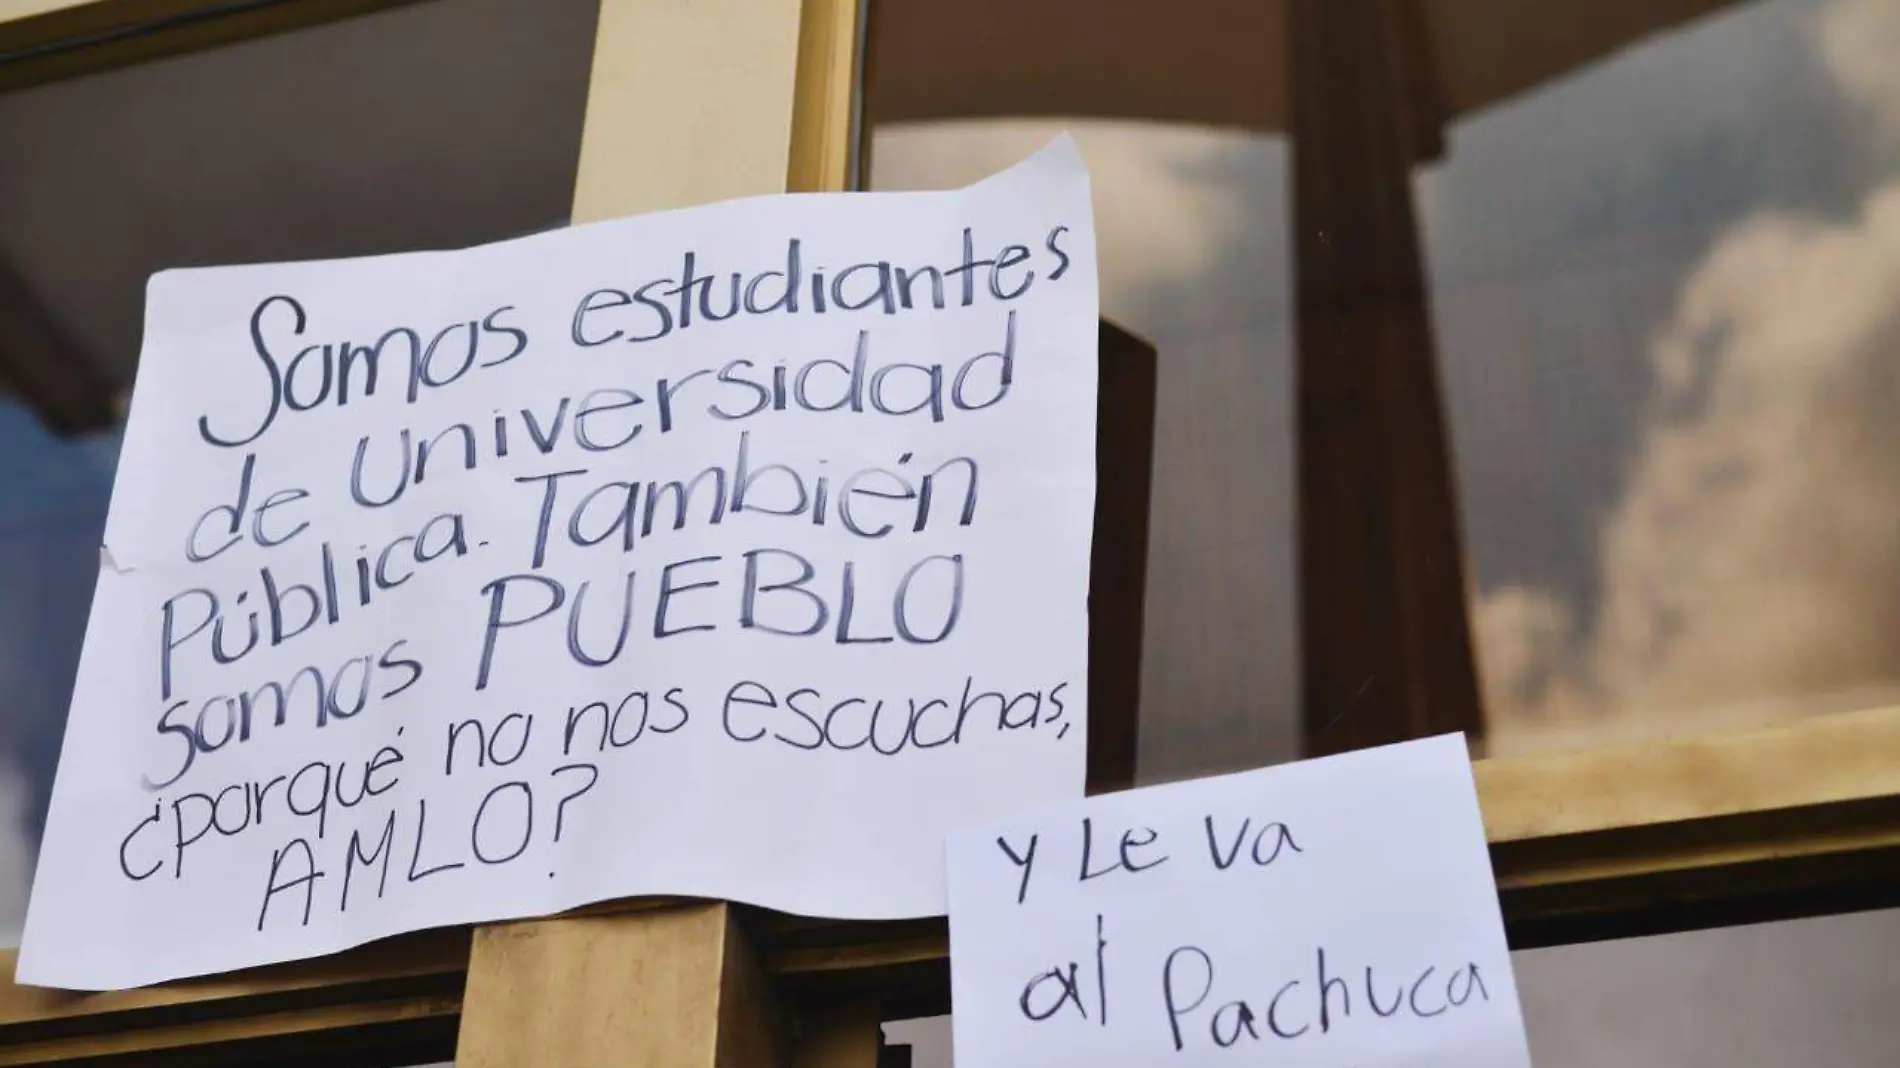 Somos estudiantes
de Universidad
Pública. También
somos PUEBLO
¿porqué no nos escuchas,
AMLO?
y Le va
al Pachuca